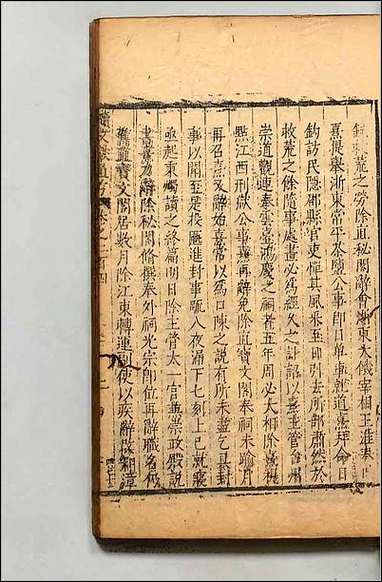 救荒之勞除直秘閣辭會浙東大饑宰相王淮奏除
熹提舉浙東常平茶鹽公事即日單車就道熹拜命日
鈞訪民隱郡縣官吏憚其風采至即引去所部肅然於
救荒之餘隨事處畫必爲經久之計詔以熹主管台州
崇道觀連奉雲臺鴻慶之祠者五年周必大相除熹提
點江西刑獄公事再辭免除直寶文閣奉祠未踰月
再召熹又辭始熹嘗以爲口陳之說有所未盡乞具封
事以聞至是投匭進封事疏入夜漏下七刻上已就寢
亟起秉燭讀之終篇明日除主管太一宮兼崇政殿說
書熹力辭除秘閣修撰奉外祠光宗即位再辭職名仍
舊直寶文閣居數月除江東轉運副使以疾辭改知漳
續文獻通考卷之二百四